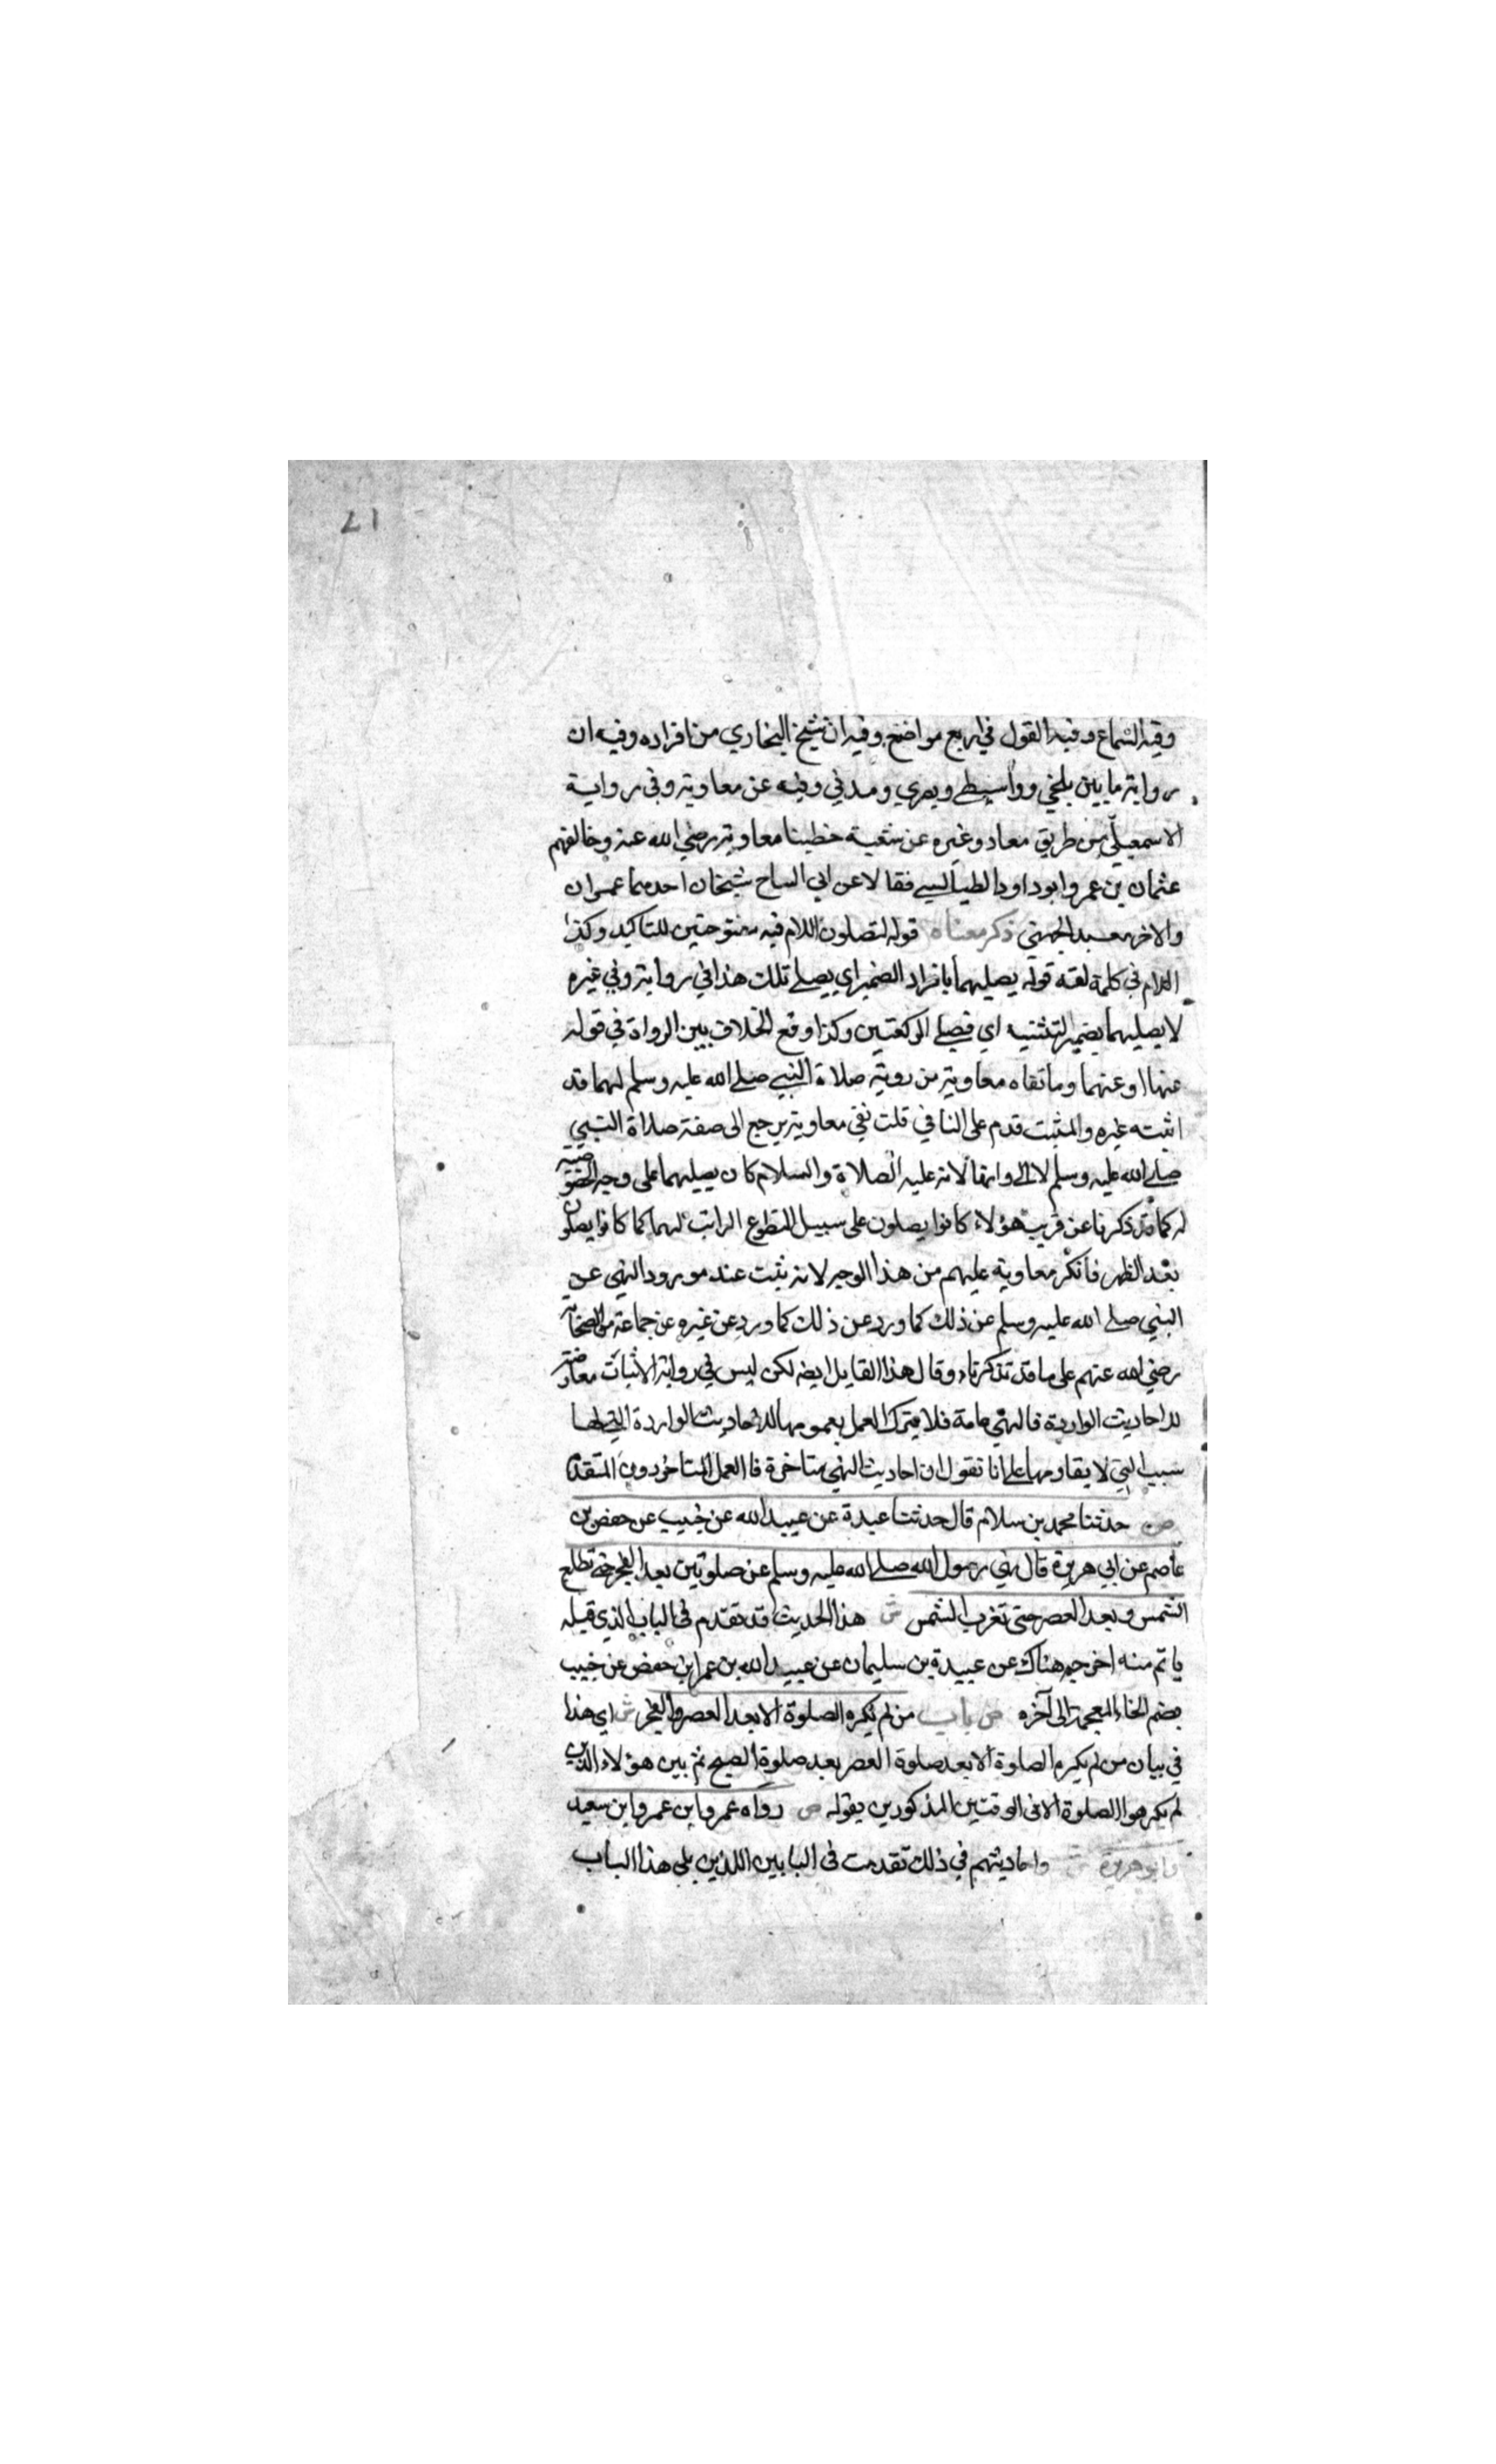 ١٦
وفيه السماع وفيه القول في اربع مواضع وفيه ان شيخ البخاري من افراده وفيه ان
رواية ما بين بلخي وواسطي وبصري ومدني وفيه عن معاوية وفي رواية
الاسمعيلي من طريق معاد وغيره عن شعبة خطبنا معاوية رضي الله عنه وخالفهم
عثمان بن عمر وابو داود الطيالسي فقالا عن ابي الساح شيخان احدهما عمران
والاخر معبد الجهني ذكر معناه قوله لتصلون اللام فيه مفتوحتين للتاكيد وكذا
اللام في كلمة لقد قوله يصليهما بافراد الضمير اي يصلي تلك هذا في رواية وفي غيره
لا يصليهما بضمير التثنيه اي فيصلي الركعتين وكذا وقع الخلاف بين الرواة في قوله
عنها او عنهما وما نفاه معاوية من روية صلاة النبي صلى الله عليه وسلم لهما قد
اثبته غيره والمثبت قدم على النافي قلت نفي معاوية يرجع الى صفة صلاة النبي
صلى الله عليه وسلم لا الى وانها لانه عليه الصلاة والسلام كان يصليهما على وجه الخصوصيه
له كما قد ذكرنا عن قريب هؤلاء كانوا يصلون على سبيل التطوع الراتب لهما كما كانوا يصلون
بعد الظهر فانكر معاوية عليهم من هذا الوجه لانه ثبت عنده ورود النهي عن
النبي صلى الله عليه وسلم عن ذلك كما ورد عن ذلك كما ورد عن غيره عن جماعة من الصحابة
رضي الله عنهم على ما قد تذكرناه وقال هذا القايل ايضه لكن ليس في رواية الاثبات معارضة
للاحاديث الواردة فالنهي عامة فلا يترك العمل بعمومها للاحاديث الواردة التي لها
سبب التي لا يقاومها على انا نقول ان احاديث النهي متاخرة فا العمل المتاخر دون المتقدم
ص حدثنا محمد بن سلام قال حدثنا عبدة عن عبيد الله عن خبيب عن حفص بن
عاصم عن ابي هريرة قال نهي رسول الله صلى الله عليه وسلم عن صلوتين بعد الفجر حتى تطلع
الشمس وبعد العصر حتى تغرب الشمس ش هذا الحديث قد تقدم في الباب الذي قبله
باتم منه اخرجه هناك عن عبيدة بن سليمان عن عبيد الله بن عمر ابن حفص عن خبيب
بضم الخاء المعجمة الى آخره ص باب من لم يكره الصلوة الا بعد العصر والفجر ش اي هذا
في بيان من لم يكره الصلوة الا بعد صلوة العصر بعد صلوة الصبح ثم بين هؤلاء الذين
لم يكرهوا الصلوة الا في الوقتين المذكورين بقوله ص رواه عمر وابن عمر وابن سعيد
وابو هريرة ش واحاديثهم في ذلك تقدمت في البابين اللذين يلي هذا الباب